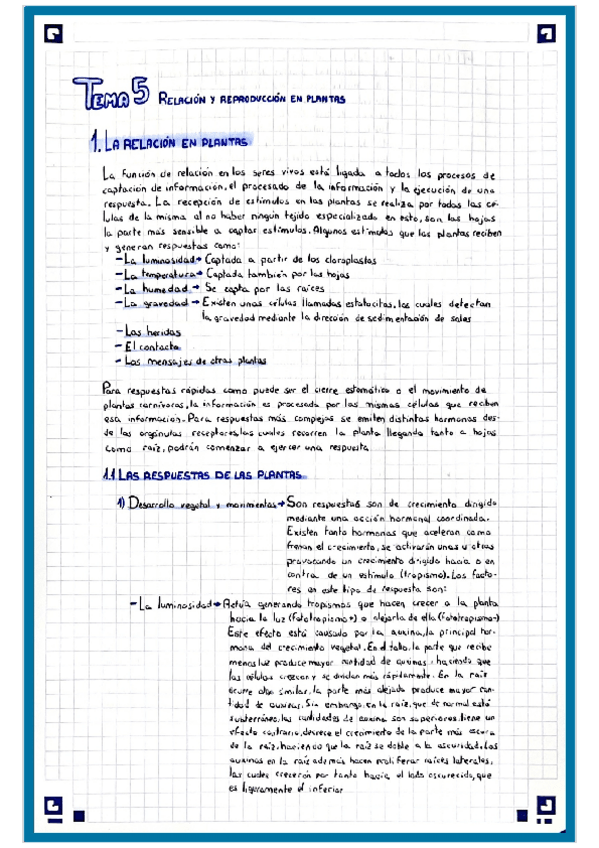 TEMA 5 RELACIÓN Y REPRODUCCIÓN EN PLANTAS
1. LA RELACIÓN EN PLANTAS
La función de relación en los seres vivos está ligada a todos los procesos de
captación de información, el procesado de la información y la ejecución de una
respuesta. La recepción de estímulos en las plantas se realiza por todas las cé-
lulas de la misma al no haber ningún tejido especializado en esto, son las hojas
la parte más sensible a captar estímulos. Algunos estímulos que las plantas reciben
y generan respuestas como:
- La luminosidad → Captada a partir de los cloroplastos
- La temperatura → Captada también por las hojas
- La humedad → Se capta por las raíces
- La gravedad → Existen unas células llamadas estatocitos, las cuales detectan
la gravedad mediante la dirección de sedimentación de sales
- Las heridas
- El contacto
- Los mensajes de otras plantas
Para respuestas rápidas como puede ser el cierre estomático o el movimiento de
plantas carnívoras, la información es procesada por las mismas células que reciben
esa información. Para respuestas más complejas se emiten distintas hormonas des-
de las orgánulas receptoras, las cuales recorren la planta llegando tanto a hojas
como raíz, podrán comenzar a ejercer una respuesta
1.1 LAS RESPUESTAS DE LAS PLANTAS
1) Desarrollo vegetal y movimientos → Son respuestas son de crecimiento dirigido
mediante una acción hormonal coordinada.
Existen tanto hormonas que aceleran como
frenan el crecimiento, se activarán unas u otras
provocando un crecimiento dirigido hacia o en
contra de un estímulo (tropismo). Los facto-
res en este tipo de respuesta son:
- La luminosidad → Actúa generando tropismos que hacen crecer a la planta
hacia la luz (fototropismo+) o alejarla de ella (fototropismo-)
Este efecto está causado por la auxina, la principal hor-
mona del crecimiento vegetal. En el tallo, la parte que recibe
menos luz produce mayor cantidad de auxinas, haciendo que
las células crezcan y se dividan más rápidamente. En la raíz
ocurre algo similar, la parte más alejada produce mayor can-
tidad de auxinas. Sin embargo, en la raíz, que de normal está
subterránea, las cantidades de auxina son superiores, tiene un
efecto contrario, decrece el crecimiento de la parte más oscura
de la raíz, haciendo que la raíz se doble a la oscuridad. Las
auxinas en la raíz además hacen proliferar raíces laterales,
las cuales crecerán por tanto hacia el lado oscurecido, que
es ligeramente el inferior